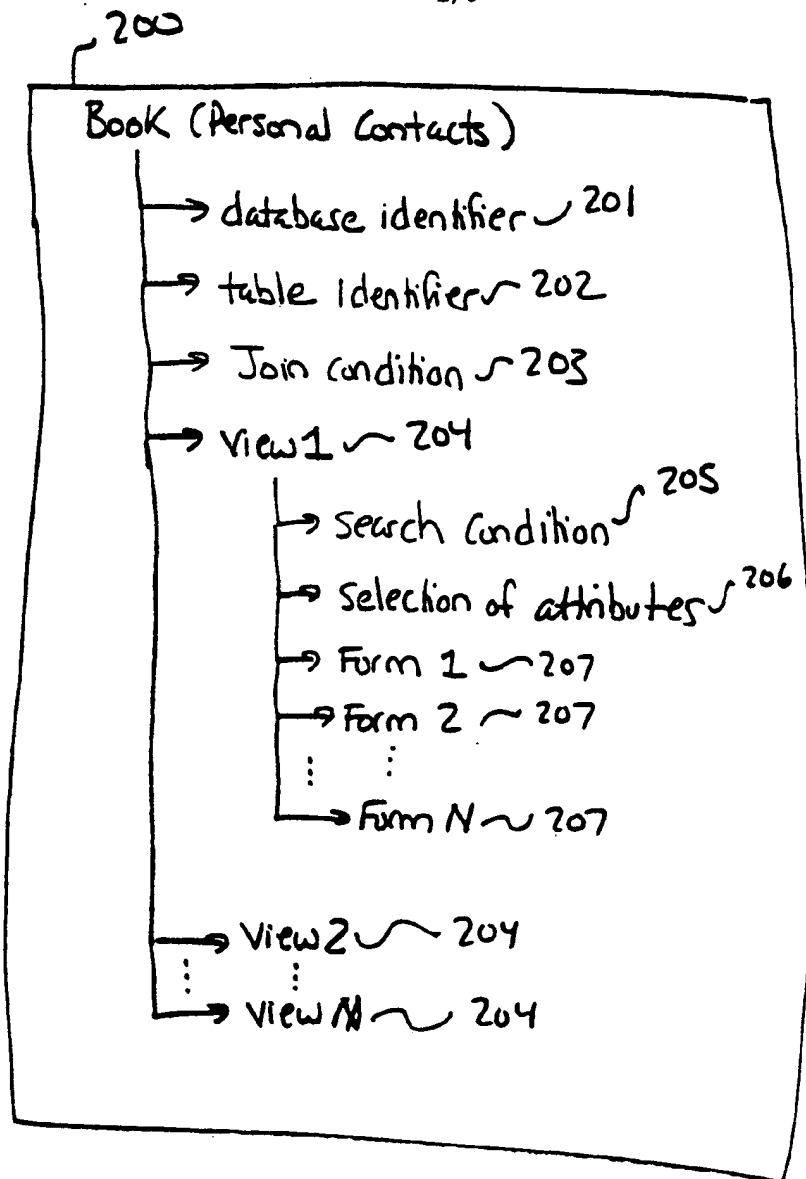 200
Book (Personal Contacts)
database identifier 201
table identifier 202
Join condition 203
View 1 204
Search Condition 205
Selection of attributes 206
Form 1 207
Form 2 207
Form N 207
View 2 204
View 204